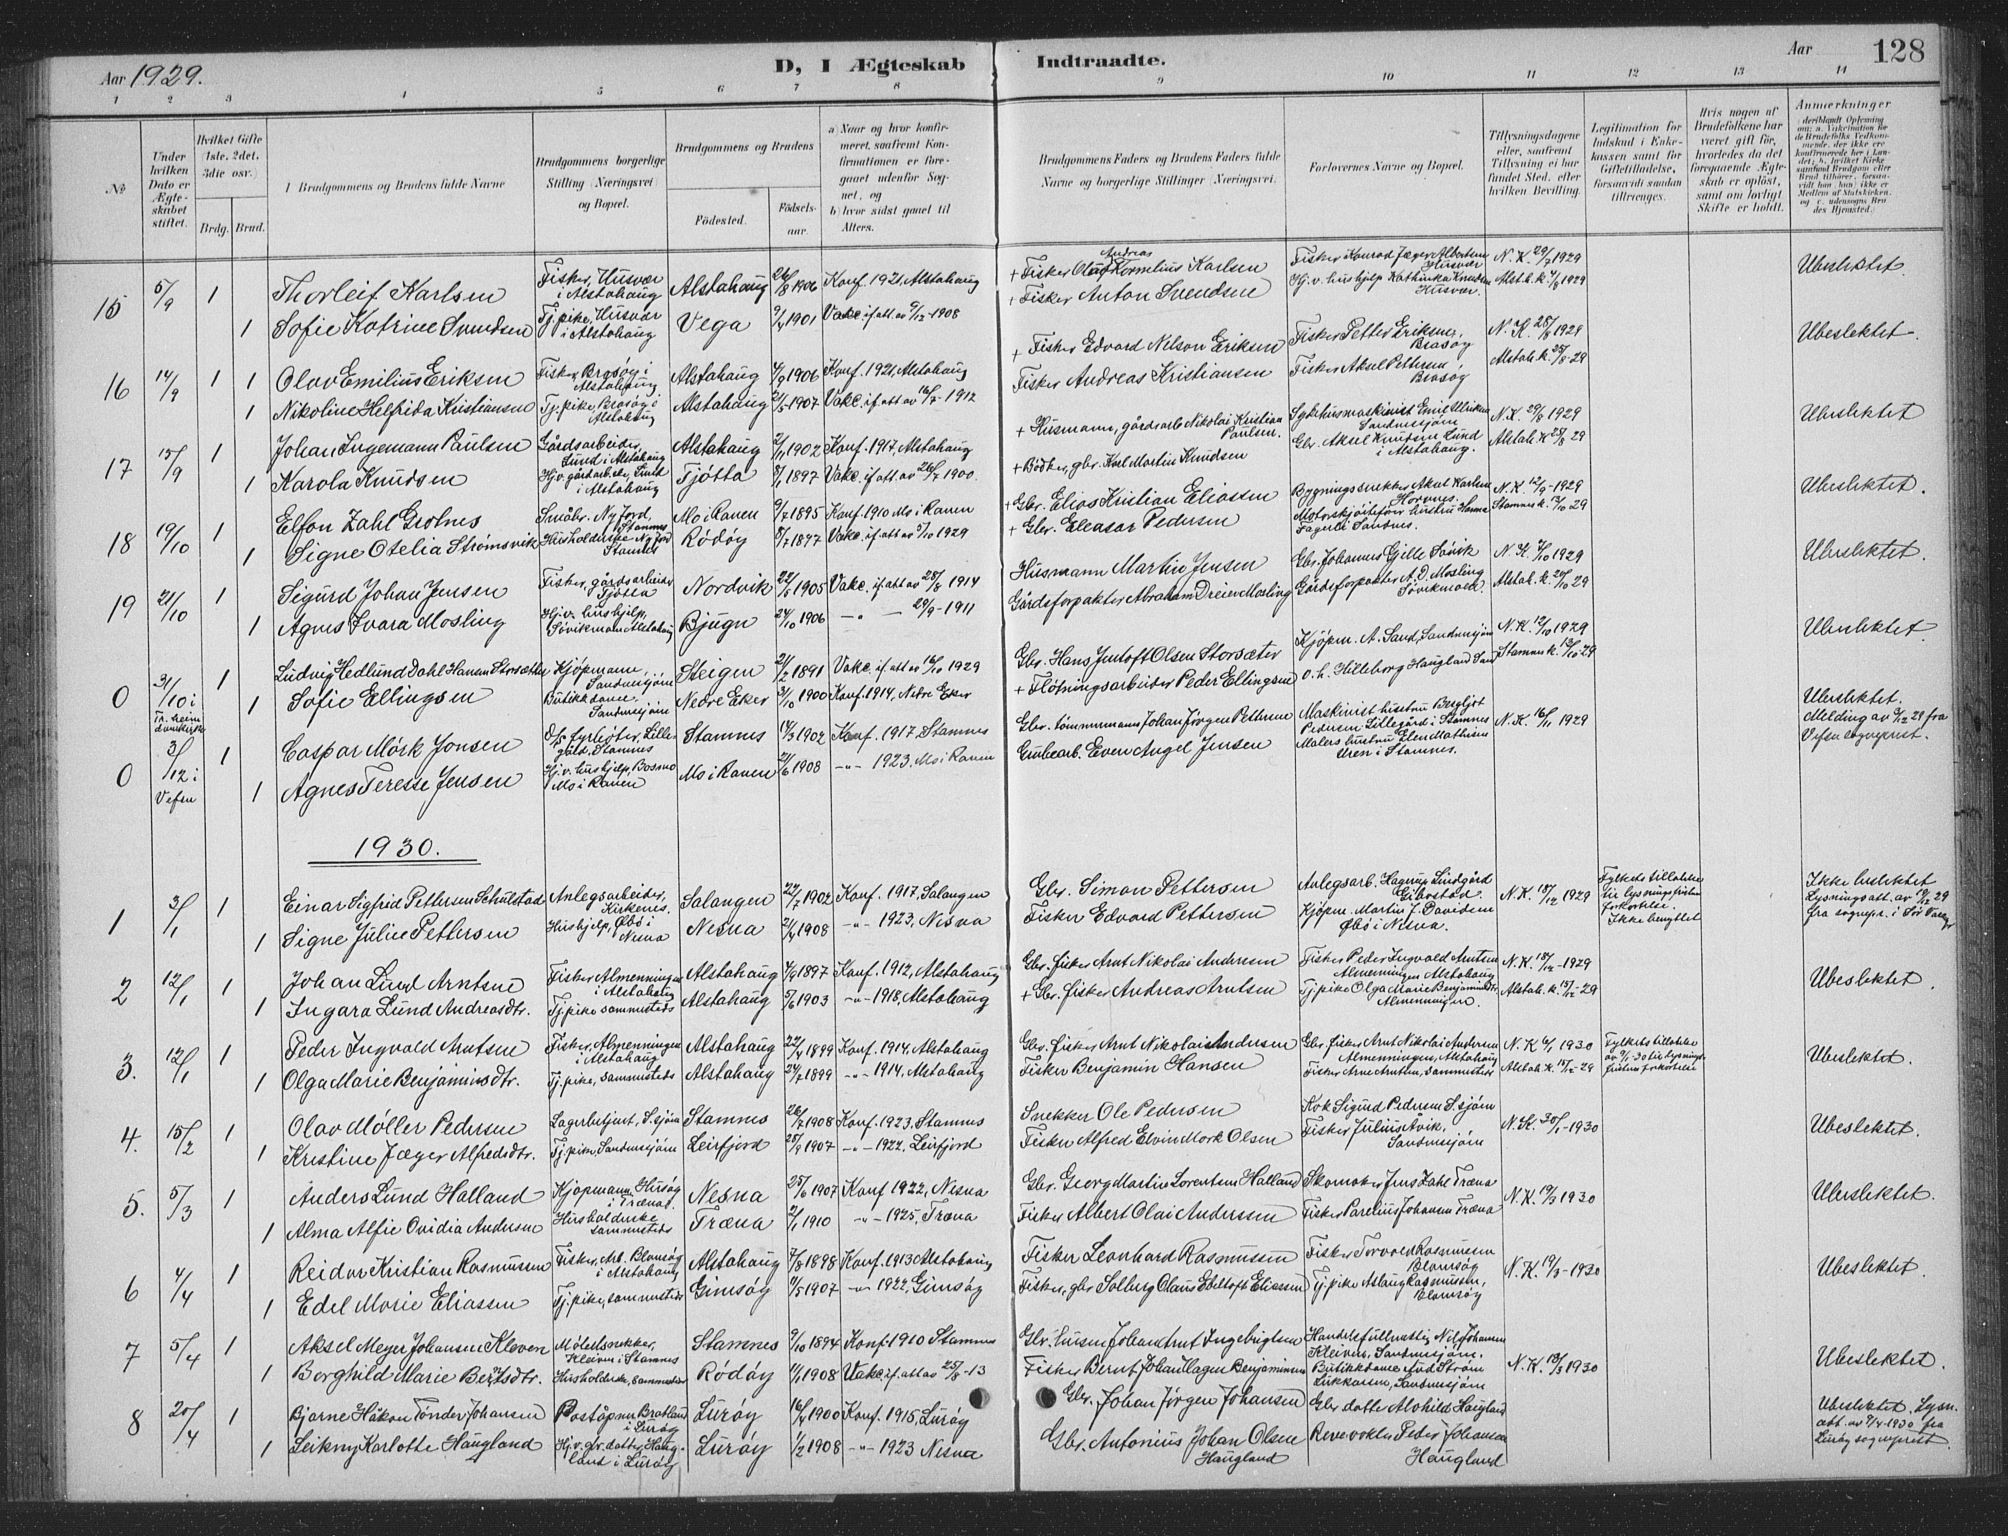 Aar 1929.
D, I Ægteskab Indtraadte.
Aar 128
1 2 3 4 5 6 7 8 9 10 11 12 13 14
No
Under hvilken Dato er Ægteskabet stiftet.
Hvilket Gifte 1ste, 2det, 3die osv.)
Brdg. Brud.
Brudgommens og Brudens fulde Navne
Brudgommens borgerlige Stilling (Næringsvei) og Bopæl.
Brudgommens og Brudens
Födested.
Födselsaar.
a) Naar og hvor konfirmeret, saafremt Konfirmationen er foregaaet udenfor Sognet, og
b) hvor sidst gaaet til Alters.
Brudgommens Faders og Brudens Faders fulde Navne og borgerlige Stillinger (Næringsvei).
Forlovernes Navne og Bopæl.
Tillysningsdagene eller, saafremt Tillysning ei har fundet Sted, efter hvilken Bevilling.
Legitimation for Indskud i Enkekassen samt for Giftetilladelse, forsaavidt saadan tiltrænges.
Hvis nogen af Brudefolkene har været gift før, hvorledes da det foregaaende Ægteskab er opløst, samt om lovligt Skifte er holdt.
Anmærkninger
15 5/9 1 Thorleif Karlsen Fisker, Husvær i Alstahaug Alstahaug 26/8 1906 Konf. 1921, Alstahaug + Fisker Olaf Andreas Kornelius Karlsen Fisker Konrad Jæger Albertsen Husvær N. K. 29/7 1929 Ubeslektet
1 Sofie Katrine Svendsen Tj. pike, Husvær i Alstahaug Vega 9/4 1901 Vakc. if att av 9/12 - 1908 + Fisker Anton Svendsen Hj. v. hushjelp Kathinka Knudsen Husvær.
16 14/9 1 1 Olav Emilius Eriksen Fisker, Brasøy i Alstahaug Alstahaug 4/9 1906 Konf. 1921, Alstahaug + Fisker Edvard Nilson Eriksen Fisker Petter Eriksen, Brasøy N. K. 28/8 1929 Ubeslektet
1 Nikoline Helfrida Kristiansen Tj. pike, Brasøy i Alstahaug Alstahaug 2/5 1907 Vakc. if att av 16/7 - 1912 Fisker Andreas Kristiansen Fisker Aksel Pettersen, Brasøy Alstah k. 25/8 - 29
17 15/9 1 Johan Ingemann Paulsen Gårdsarbeider, Lund i Alstahaug Alstahaug 2/11 1902 Konf. 1917, Alstahaug + Husmann, gårdsarb Nikolai Kristian Paulsen. Sykehusmaskinist Emil Ulriksen Sandnessjøen N. K. 29/8 1929 Ubeslektet
1 Karola Knudsen Hj. v. gårdarbeide, Lund i Alstahaug Tjøtta 8/1 1897 Vakc. if att av 26/7 1900. + Bødker, gbr. Karl Martin Knudsen Gbr. Aksel Knutsen Lund i Alstahaug. Alstah k 25/8 29
18 19/10 1 Elfon Zahl Grotnes Småbr. Nyjord, Stamnes Mo i Ranen 9/7 1895 Konf. 1910 Mo i Ranen + Gbr. Elias Kristian Eliassen Bygningssnekker Aksel Karlsen Horvnes N. K. 12/9 - 1929 Ubeslektet.
1 Signe Otelia Strømsvik Husholderske Nyjord Stamnes Rödöy 8/7 1897 Vakc. if att av 5/10 1929 + Gbr. Eleasar Pedersen Motorskjøtefører hustru Hanna Fagerli Sandnes. Stamnes k. 13/10 29
19 21/10 1 Sigurd Johan Jensen Fisker, gårdsarbeider Tjötta Nordvik 22/5 1905 Vakc. if att av 28/8 1914 Husmann Martin Jensen Gbr. Johannes Gjelle Søvik N. K. 7/10 1929 Ubeslektet.
1 Agnes Svara Mosling Hj. v. hushjelp, Søvikmoen Alstahaug Bjugn 24/10 1906 -"- - 29/9 - 1911 Gårdsforpakter Abraham Dreien Mosling Gårdsforpakter A. D. Mosling Søvikmoen Alstah. k. 20/10 29
0 31/10 i Tr.heim domkirke 1 Ludvig Hedlund Dahl Hansen Storsæter Kjøpmann, Sandnessjøen Steigen 21/2 1891 Vakc. if att av 16/10 1929 Gbr. Hans Jentoft Olsen Storsæter Kjøpm. A. Sand, Sandnessjøen N. K. 12/10 1929 Ubeslektet.
1 Sofie Ellingsen Butikkdame, Sandnessjøen Nedre Eker 3/10 1900 Konf. 1914, Nedre Eker + Fløtningsarbeider Peder Ellingsen o. h. Hilleborg Haugland Sand Stamnes k. 13/10 - 29
0 3/12 i Vefsn 1 Caspar Mørk Jonsen Stamnes 14/3 1902 Konf. 1917, Stamnes Gbr. tømmermann Johan Jørgen Pettersen Maskinist hustru Bergljot Pedersen Lillegård i Stamnes N. K. 16/11 1929 Ubeslektet. Melding av 3/12 29 fra Vefsn sogneprest.
1 Agnes Terese Jensen Hj. v. hushjelp, Bosmo Mo i Ranen Mo i Ranen 2/6 1908 -"- 1923, Mo i Ranen Grubearb. Even Angel Jensen Malers hustru Elen Mathisen Uren i Stamnes.
1930.
1 3/1 1 Einar Sigfrid Pettersen Schulstad Anlegsarbeider, Kirkenes. Salangen 22/7 1902 Konf. 1917, Salangen Gbr. Simon Pettersen Anlegsarb. Hagrup Lindgård Gibostad. N. K. 18/12 1929 Fylkets tillatelse til lysningsfristens forkortelse. Ikke benyttet Ikke beslektet Lysningsatt. av 19/12 29 fra sognepr. i Sør Varanger
1 Signe Julie Pettersen Hushjelp, Øbø i Nesna Nesna 2/4 1908 -"- 1923, Nesna Fisker Edvard Pettersen Kjøpm. Martin J. Davidsen Øbø i Nesna.
2 12/1 1 Johan Lund Arntsen Fisker, Almenningen i Alstahaug Alstahaug 4/9 1897 Konf. 1912, Alstahaug Gbr. fisker Arnt Nikolai Andersen Fisker Peder Ingvald Arntsen Almenningen Alstahaug N. K. 18/12 - 1929 Ubeslektet
1 Ingara Lund Andreasdtr. Tj. pike sammesteds Alstahaug 5/6 1903 -"- 1918, Alstahaug + Gbr. fisker Andreas Arntsen Tj. pike Olga Marie Benjaminsdtr. Almenningen. Alstah. k. 15/12 - 29
3. 12/1 1 Peder Ingvald Arntsen Fisker, Almenningen i Alstahaug Alstahaug 22/4 1899 Konf. 1914, Alstahaug Gbr. fisker Arnt Nikolai Andersen Gbr. fisker Arnt Nikolai Andersen Almenningen, Alstahaug N. K. 6/1 1930 Fylkets tillatelse av 9/1 - 30 til lysningsfristens forkortelse Ubeslektet.
1 Olga Marie Benjaminsdtr. Tj. pike, sammesteds Alstahaug 24/2 1899 -"- 1914, Alstahaug Fisker Benjamin Hansen Fisker Arne Arntsen, sammesteds Alstah. k. 15/12 - 29
4. 15/2 1 Olav Møller Pedersen Lagerbetjent, S.sjøen Stamnes 26/7 1908 Konf. 1923, Stamnes Snekker Ole Pedersen Kok Sigurd Pedersen S.sjøen N. K. 30/1 - 1930 Ubeslektet.
1 Kristine Jæger Alfredsdtr. Tj. pike, Sandnessjøen Leirfjord 25/9 1907 -"- 1922, Leirfjord Fisker Alfred Eivind Mork Olsen Fisker Julius Åvik, Sandnessjøen
5. 5/3 1 Anders Lund Halland Kjøpmann, Husøy i Træna. Nesna 25/6 1907 Konf 1922, Nesna Gbr. Georg Martin Lorentsen Halland Skomaker Jens Zahl Træna N. K. 19/3 1930 Ubeslektet.
1 Alma Alfie Ovidia Andersen Husholderske sammesteds Træna 2/1 1910 -"- 1925, Træna Fisker Albert Olai Anderssen Fisker Parelius Johansen Træna
6 4/4 1 Reidar Kristian Rasmussen Fisker, Arb. Blomsøy i Alstahaug Alstahaug 7/8 1898 Konf. 1913 Alstahaug Fisker Leonhard Rasmussen Fisker Torvald Rasmussen Blomsøy N. K. 19/3 - 1930 Ubeslektet.
1 Edel Marie Eliassen Tj. pike, sammesteds Gimsöy 11/5 1907 -"- 1922, Gimsöy Fisker, gbr Solberg Olaus Ebeltoft Eliassen Tj. pike Aslaug Rasmussen, Blomsöy
7 5/4 1 Aksel Meyer Johansen Kleven Møbelsnekker, Kleiven i Stamnes Stamnes 9/10 1894 Konf. 1910 Stamnes Handelsfullmektig Nils Johansen Kleiven, Sandnessjøen. N. K. 13/3 1930 Ubeslektet.
1 Borghild Marie Berntsdtr. Husholdersk, sammesteds Rödöy 11/1 1908 Vakc if att av 25/8 - 13 Fisker Bernt Johan Hagen Benjaminsen
8 20/4 1 Bjarne Håkon Tønder Johansen Poståpner Bratland i Luröy Luröy 16/4 1900 Konf. 1915, Luröy Gbr. Johan Jörgen Johansen Gbr datter Mohild Haugland Ubeslektet. Lysn. att. av 9/4 1930 fra Luröy sogneprest.
1 Leikny Karlotte Haugland Hj. v. gbr. datter, Haugland i Luröy Luröy 1/2 1908 -"- 1923 Nesna Gbr. Antonius Johan Olsen Haugland Revevokter Peder Johansen Haugland